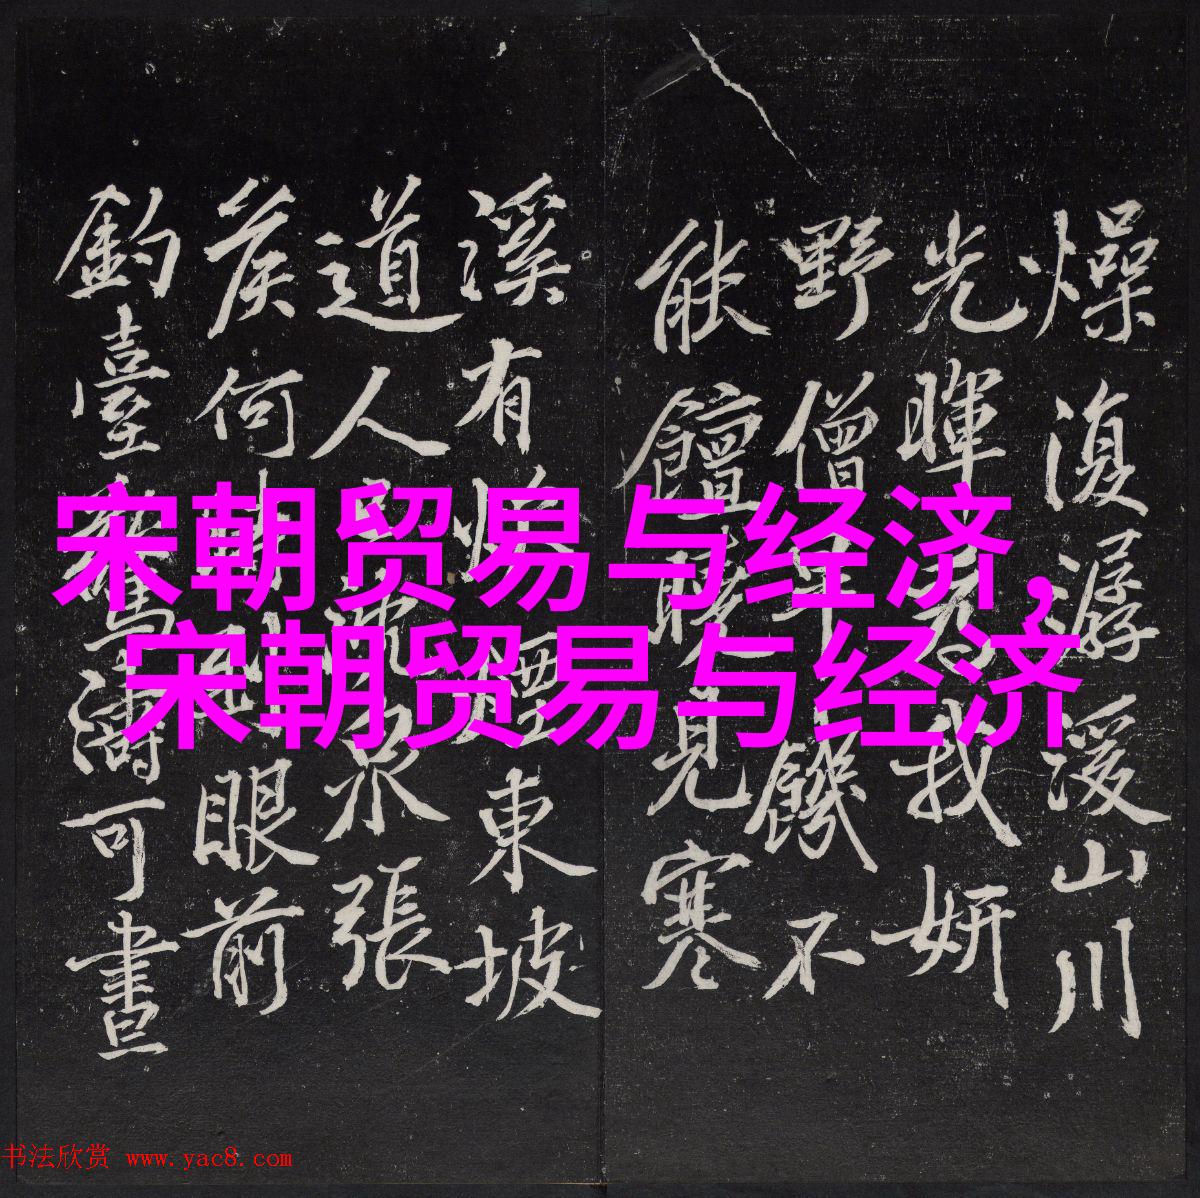 燥復潺湲山川
光暉我妍
野僧饑不
能饘見寒
溪有煙東坡
道人泉張
矦何眼前
釣臺濤可畫
宋朝贸易与经济，
宋朝贸易与经济
书法欣赏 www.yac8.com